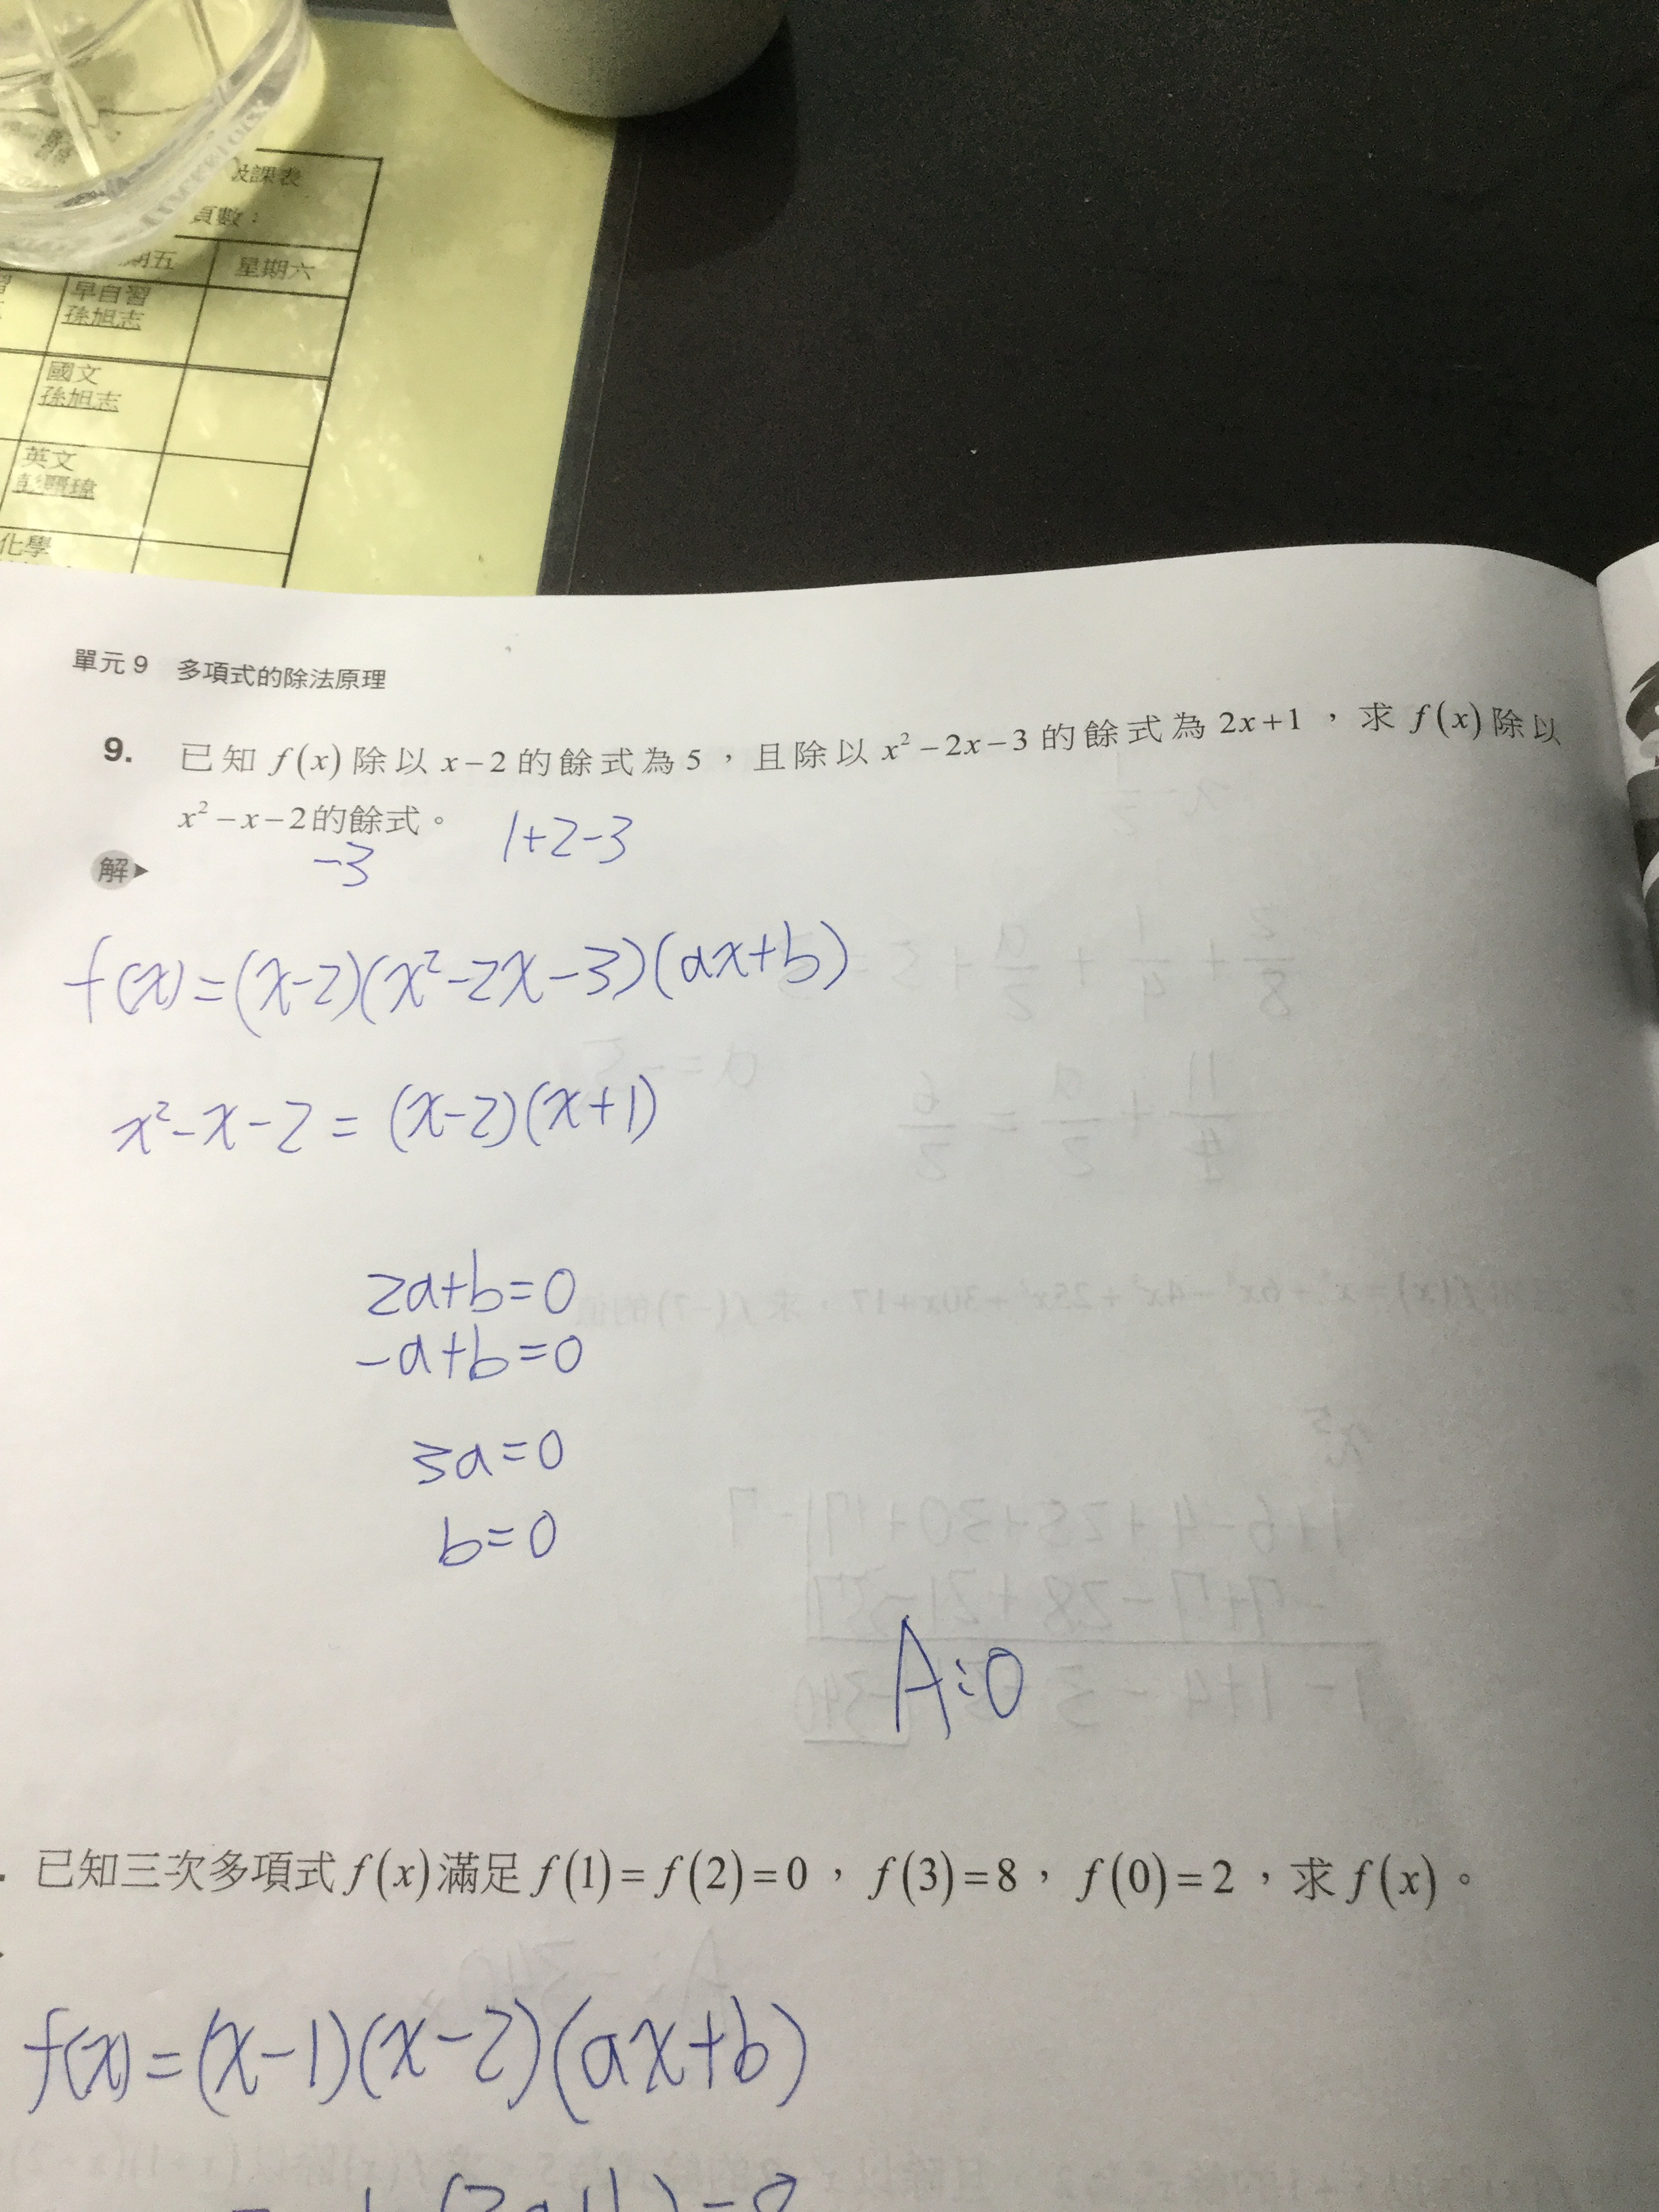 課表
頁數：
期五 星期六
早自習
孫旭志
國文
孫旭志
英文
化學
單元 9 多項式的除法原理
9. 已知 f(x) 除以 x−2 的餘式為 5 ，且除以 x²−2x−3 的餘式為 2x+1 ，求 f(x) 除以
x²−x−2 的餘式。
1+2−3
−3
解
f(x)=(x−2)(x²−2x−3)(ax+b)
x²−x−2=(x−2)(x+1)
2a+b=0
−a+b=0
3a=0
b=0
A:0
已知三次多項式 f(x) 滿足 f(1)=f(2)=0 ，f(3)=8 ，f(0)=2 ，求 f(x) 。
f(x)=(x−1)(x−2)(ax+b)